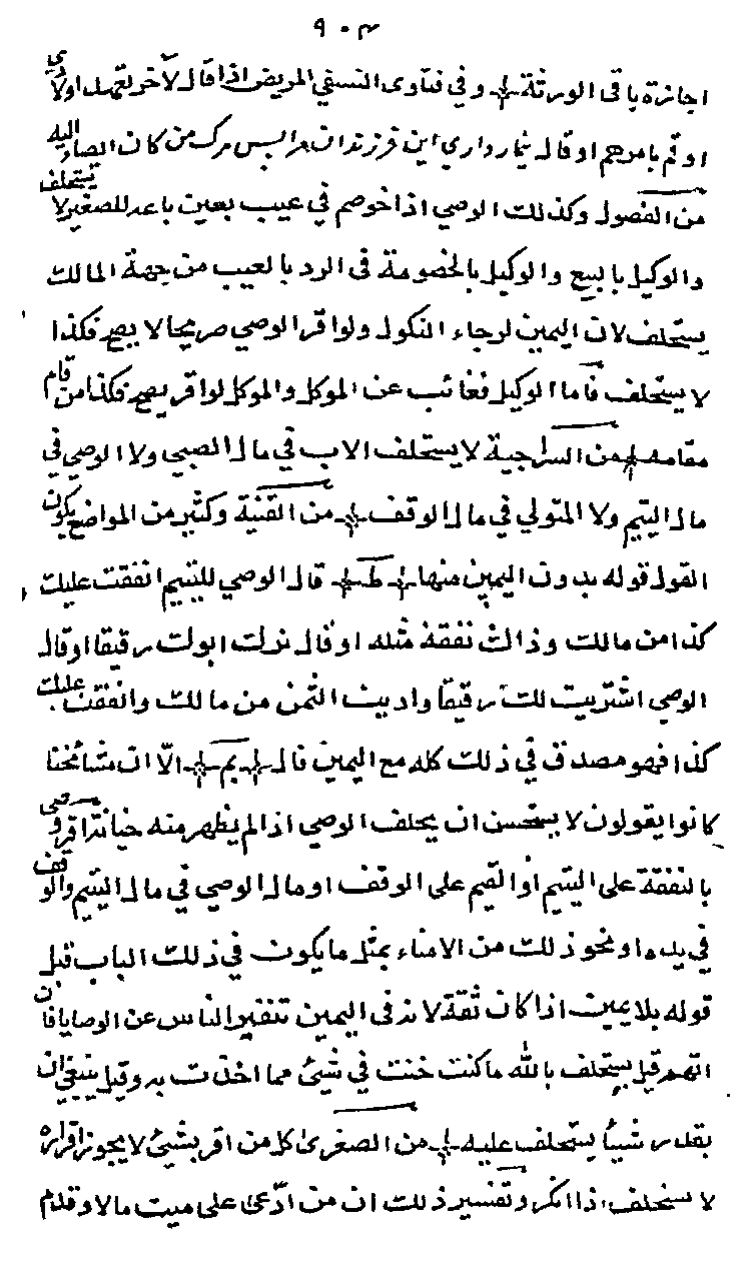 ٩٠٣
اجازة باقى الورثة وفي فتاوى النسفي المريض اذا قال لآخر تعهد اولادي
او قم بامرهم او قال تيمار داري اين فرزندان مرا پس مرگ من كان الصا اليه
من الفصول وكذلك الوصي اذا خوصم في عيب بعين باعه للصغير لا يستحلف
والوكيل بالبيع والوكيل بالخصومة في الرد بالعيب من جهة المالك
يستحلف لان اليمين لرجاء النكول ولو اقر الوصي صريحا لا يصح فكذا
لا يستحلف فاما الوكيل فغائب عن الموكل والموكل لو اقر يصح فكذا من قام
مقامه من السراجية لا يستحلف الاب في مال الصبي ولا الوصي في
مال اليتيم ولا المتولي في مال الوقف من القنية وكثير من المواضع يكون
القول قوله بدون اليمين منها ط قال الوصي لليتيم انفقت عليك
كذا من مالك وذالك نفقة مثله او قال ترك ابوك رقيقا او قال
الوصي اشتريت لك رقيقا واديت الثمن من مالك وانفقت عليك
كذا فهو مصدق في ذلك كله مع اليمين قال بم الّا ان مشائخنا
كانوا يقولون لا يستحسن ان يحلف الوصي اذا لم يظهر منه خيانة اقر وصي
بالنفقة على اليتيم او القيم على الوقف او مال الوصي في مال اليتيم والوقف
في يده او نحو ذلك من الامناء بمثل ما يكون في ذلك الباب قبل
قوله بلا يمين اذا كان ثقة لان في اليمين تنفير الناس عن الوصايا فان
اتهم قيل يستحلف بالله ما كنت خنت في شيئ مما اخذت به وقيل ينبغي ان
يقدر شيئا يستحلف عليه من الصغرى كل من اقر بشيئ لا يجوز اقراره
لا يستحلف اذا انكر وتفسير ذلك ان من ادّعى على ميت مالا وقدم